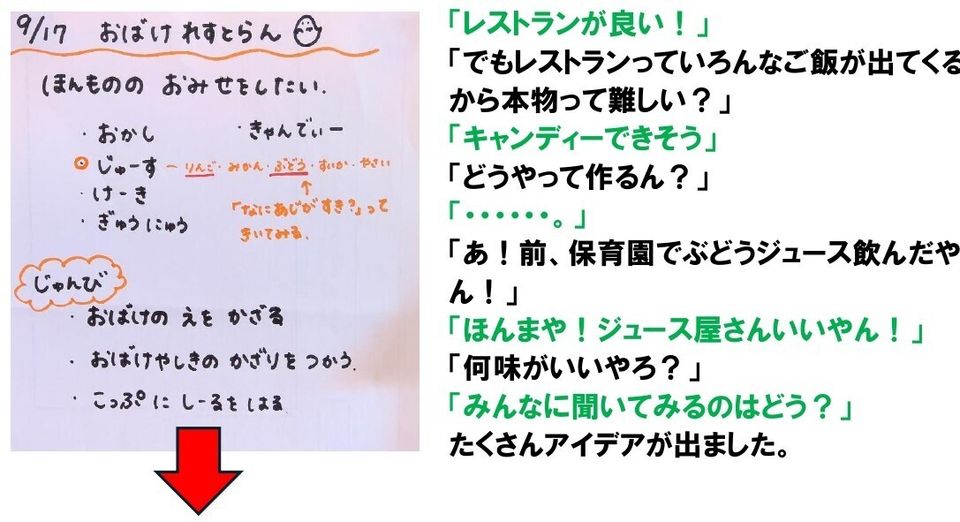 9/17 おばけ れすとらん
ほんものの おみせをしたい.
・おかし
・きゃんでぃー
・じゅーす ー りんご・みかん・ぶどう・すいか・やさい
・けーき
・ぎゅうにゅう
↑
「なにあじがすき?」って
きいてみる.
じゅんび
・おばけの えを かざる
・おばけやしきの かざりを つかう.
・こっぷに しーるを はる
「レストランが良い！」
「でもレストランっていろんなご飯が出てくる
から本物って難しい？」
「キャンディーできそう」
「どうやって作るん？」
「・・・・・・。」
「あ！前、保育園でぶどうジュース飲んだや
ん！」
「ほんまや！ジュース屋さんいいやん！」
「何味がいいやろ？」
「みんなに聞いてみるのはどう？」
たくさんアイデアが出ました。